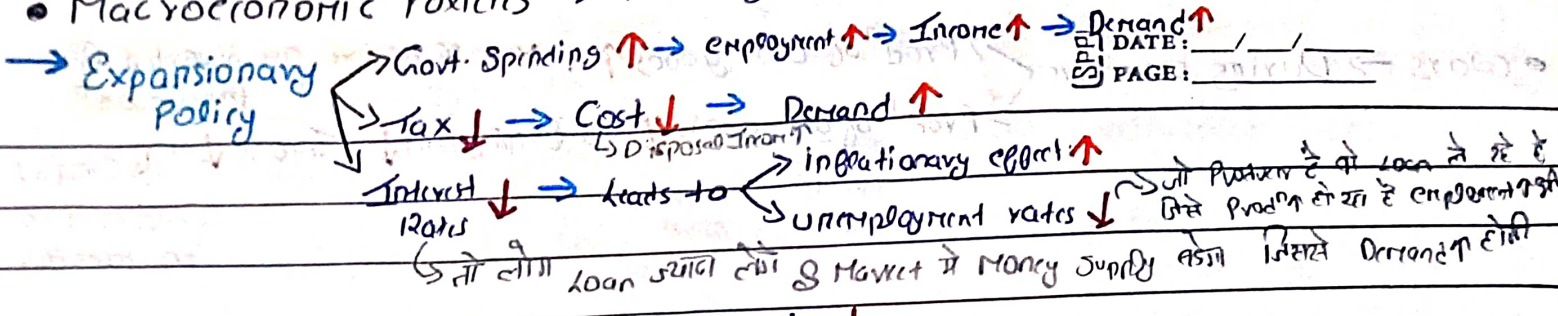 • Macroeconomic
→ Expansionary Policy
→ Govt. Spinding ↑ → employment ↑ → Income ↑ → Demand ↑
DATE: __/__/____
PAGE:
→ Tax ↓ → Cost ↓ → Demand ↑
↳ Disposal Incom ↑
Interest Rates ↓ → Leads to
→ inflationary effect ↑
→ unemployment rates ↓
→ जो है वो Loan ले रहे है
जिसे Prodⁿ ↑ हो रहा है employment ↑
↳ तो लोग Loan ज्यादा लेंगे & Market मे Money Supply बढेगा जिससे Demand ↑ होगी